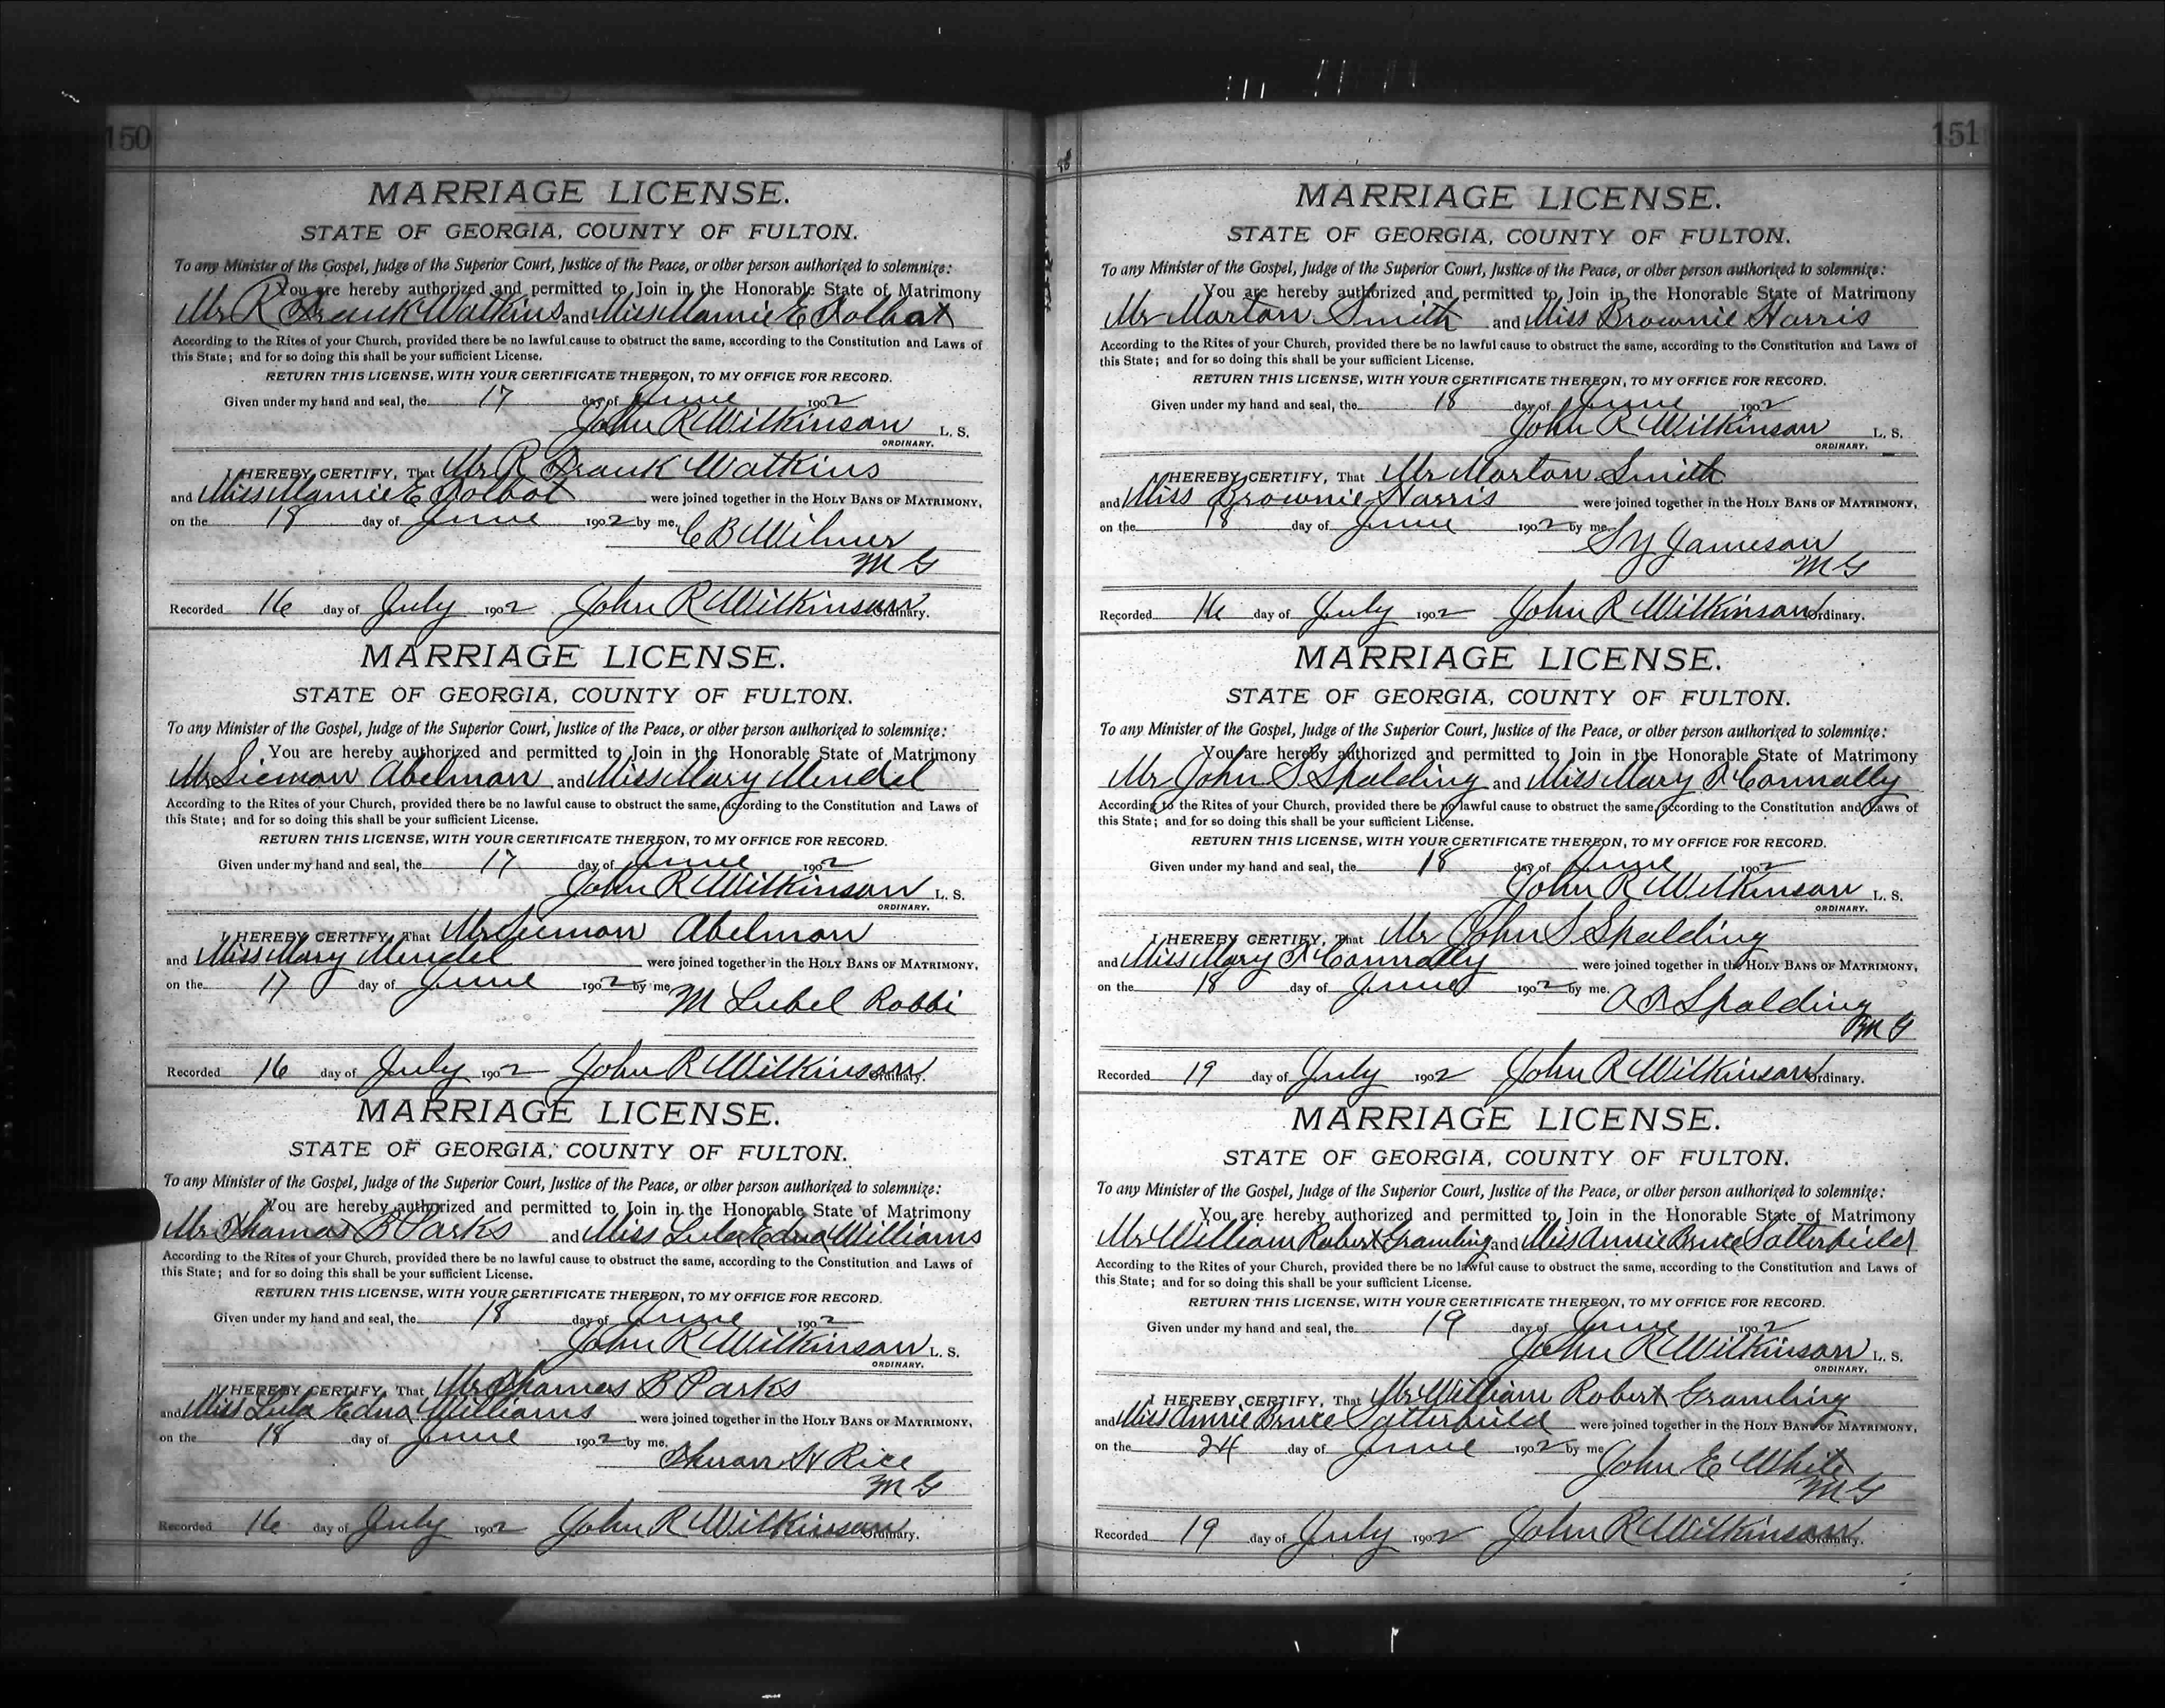 150
MARRIAGE LICENSE.
STATE OF GEORGIA, COUNTY OF FULTON.
To any Minister of the Gospel, Judge of the Superior Court, Justice of the Peace, or other person authorized to solemnize:
You are hereby authorized and permitted to Join in the Honorable State of Matrimony
Mr R Frank Watkins and Miss Mamie E Tolbot
According to the Rites of your Church, provided there be no lawful cause to obstruct the same, according to the Constitution and Laws of
this State; and for so doing this shall be your sufficient License.
RETURN THIS LICENSE, WITH YOUR CERTIFICATE THEREON, TO MY OFFICE FOR RECORD.
Given under my hand and seal, the 17 day of June 1902
John R Wilkinson L. S.
ORDINARY.
I HEREBY CERTIFY, That Mr R Frank Watkins
and Miss Mamie E Tolbot were joined together in the HOLY BANS OF MATRIMONY,
on the 18 day of June 1902 by me,
C B Wilmer
M G
Recorded 16 day of July 1902 John R Wilkinson Ordinary.
MARRIAGE LICENSE.
STATE OF GEORGIA, COUNTY OF FULTON.
To any Minister of the Gospel, Judge of the Superior Court, Justice of the Peace, or other person authorized to solemnize:
You are hereby authorized and permitted to Join in the Honorable State of Matrimony
Mr Siemon Abelman and Miss Mary Mendel
According to the Rites of your Church, provided there be no lawful cause to obstruct the same, according to the Constitution and Laws of
this State; and for so doing this shall be your sufficient License.
RETURN THIS LICENSE, WITH YOUR CERTIFICATE THEREON, TO MY OFFICE FOR RECORD.
Given under my hand and seal, the 17 day of June 1902
John R Wilkinson L. S.
ORDINARY.
I HEREBY CERTIFY, That Mr Siemon Abelman
and Miss Mary Mendel were joined together in the HOLY BANS OF MATRIMONY,
on the 17 day of June 1902 by me,
M Lubel Rabbi
Recorded 16 day of July 1902 John R Wilkinson Ordinary.
MARRIAGE LICENSE.
STATE OF GEORGIA, COUNTY OF FULTON.
To any Minister of the Gospel, Judge of the Superior Court, Justice of the Peace, or other person authorized to solemnize:
You are hereby authorized and permitted to Join in the Honorable State of Matrimony
Mr Thomas B Parks and Miss Lula Edna Williams
According to the Rites of your Church, provided there be no lawful cause to obstruct the same, according to the Constitution and Laws of
this State; and for so doing this shall be your sufficient License.
RETURN THIS LICENSE, WITH YOUR CERTIFICATE THEREON, TO MY OFFICE FOR RECORD.
Given under my hand and seal, the 18 day of June 1902
John R Wilkinson L. S.
ORDINARY.
I HEREBY CERTIFY, That Mr Thomas B Parks
and Miss Lula Edna Williams were joined together in the HOLY BANS OF MATRIMONY,
on the 18 day of June 1902 by me,
H Rice
M G
Recorded 16 day of July 1902 John R Wilkinson Ordinary.
151
MARRIAGE LICENSE.
STATE OF GEORGIA, COUNTY OF FULTON.
To any Minister of the Gospel, Judge of the Superior Court, Justice of the Peace, or other person authorized to solemnize:
You are hereby authorized and permitted to Join in the Honorable State of Matrimony
Mr Morton Smith and Miss Brownie Harris
According to the Rites of your Church, provided there be no lawful cause to obstruct the same, according to the Constitution and Laws of
this State; and for so doing this shall be your sufficient License.
RETURN THIS LICENSE, WITH YOUR CERTIFICATE THEREON, TO MY OFFICE FOR RECORD.
Given under my hand and seal, the 18 day of June 1902
John R Wilkinson L. S.
ORDINARY.
I HEREBY CERTIFY, That Mr Morton Smith
and Miss Brownie Harris were joined together in the HOLY BANS OF MATRIMONY,
on the 18 day of June 1902 by me,
S Y Jameson
M G
Recorded 16 day of July 1902 John R Wilkinson Ordinary.
MARRIAGE LICENSE.
STATE OF GEORGIA, COUNTY OF FULTON.
To any Minister of the Gospel, Judge of the Superior Court, Justice of the Peace, or other person authorized to solemnize:
You are hereby authorized and permitted to Join in the Honorable State of Matrimony
Mr John S Spalding and Miss Mary T Connally
According to the Rites of your Church, provided there be no lawful cause to obstruct the same, according to the Constitution and Laws of
this State; and for so doing this shall be your sufficient License.
RETURN THIS LICENSE, WITH YOUR CERTIFICATE THEREON, TO MY OFFICE FOR RECORD.
Given under my hand and seal, the 18 day of June 1902
John R Wilkinson L. S.
ORDINARY.
I HEREBY CERTIFY, That Mr John S Spalding
and Miss Mary T Connally were joined together in the HOLY BANS OF MATRIMONY,
on the 18 day of June 1902 by me,
A R Spalding
M G
Recorded 19 day of July 1902 John R Wilkinson Ordinary.
MARRIAGE LICENSE.
STATE OF GEORGIA, COUNTY OF FULTON.
To any Minister of the Gospel, Judge of the Superior Court, Justice of the Peace, or other person authorized to solemnize:
You are hereby authorized and permitted to Join in the Honorable State of Matrimony
Mr William Robert Gramling and Miss Annie Bruce Satterfield
According to the Rites of your Church, provided there be no lawful cause to obstruct the same, according to the Constitution and Laws of
this State; and for so doing this shall be your sufficient License.
RETURN THIS LICENSE, WITH YOUR CERTIFICATE THEREON, TO MY OFFICE FOR RECORD.
Given under my hand and seal, the 19 day of June 1902
John R Wilkinson L. S.
ORDINARY.
I HEREBY CERTIFY, That Mr William Robert Gramling
and Miss Annie Bruce Satterfield were joined together in the HOLY BANS OF MATRIMONY,
on the 24 day of June 1902 by me,
John E White
M G
Recorded 19 day of July 1902 John R Wilkinson Ordinary.